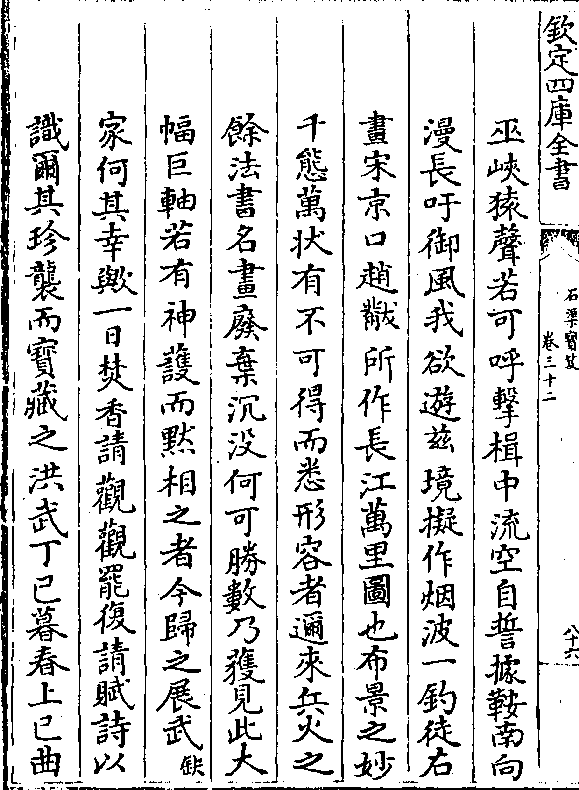 欽定四庫全書
石渠寶笈
卷三十二
八十六
巫峽猿聲若可呼擊楫中流空自誓據鞍南向
漫長吁御風我欲遊兹境擬作烟波一釣徒右
畫宋京口趙黻所作長江萬里圖也布景之妙
千態萬状有不可得而悉形容者邇來兵火之
餘法書名畫廢棄沉没何可勝數乃獲見此大
幅巨軸若有神䕶而黙相之者今歸之展武缺
家何其幸歟一日焚香請觀觀罷復請賦詩以
識爾其珍襲而寳藏之洪武丁已暮春上已曲